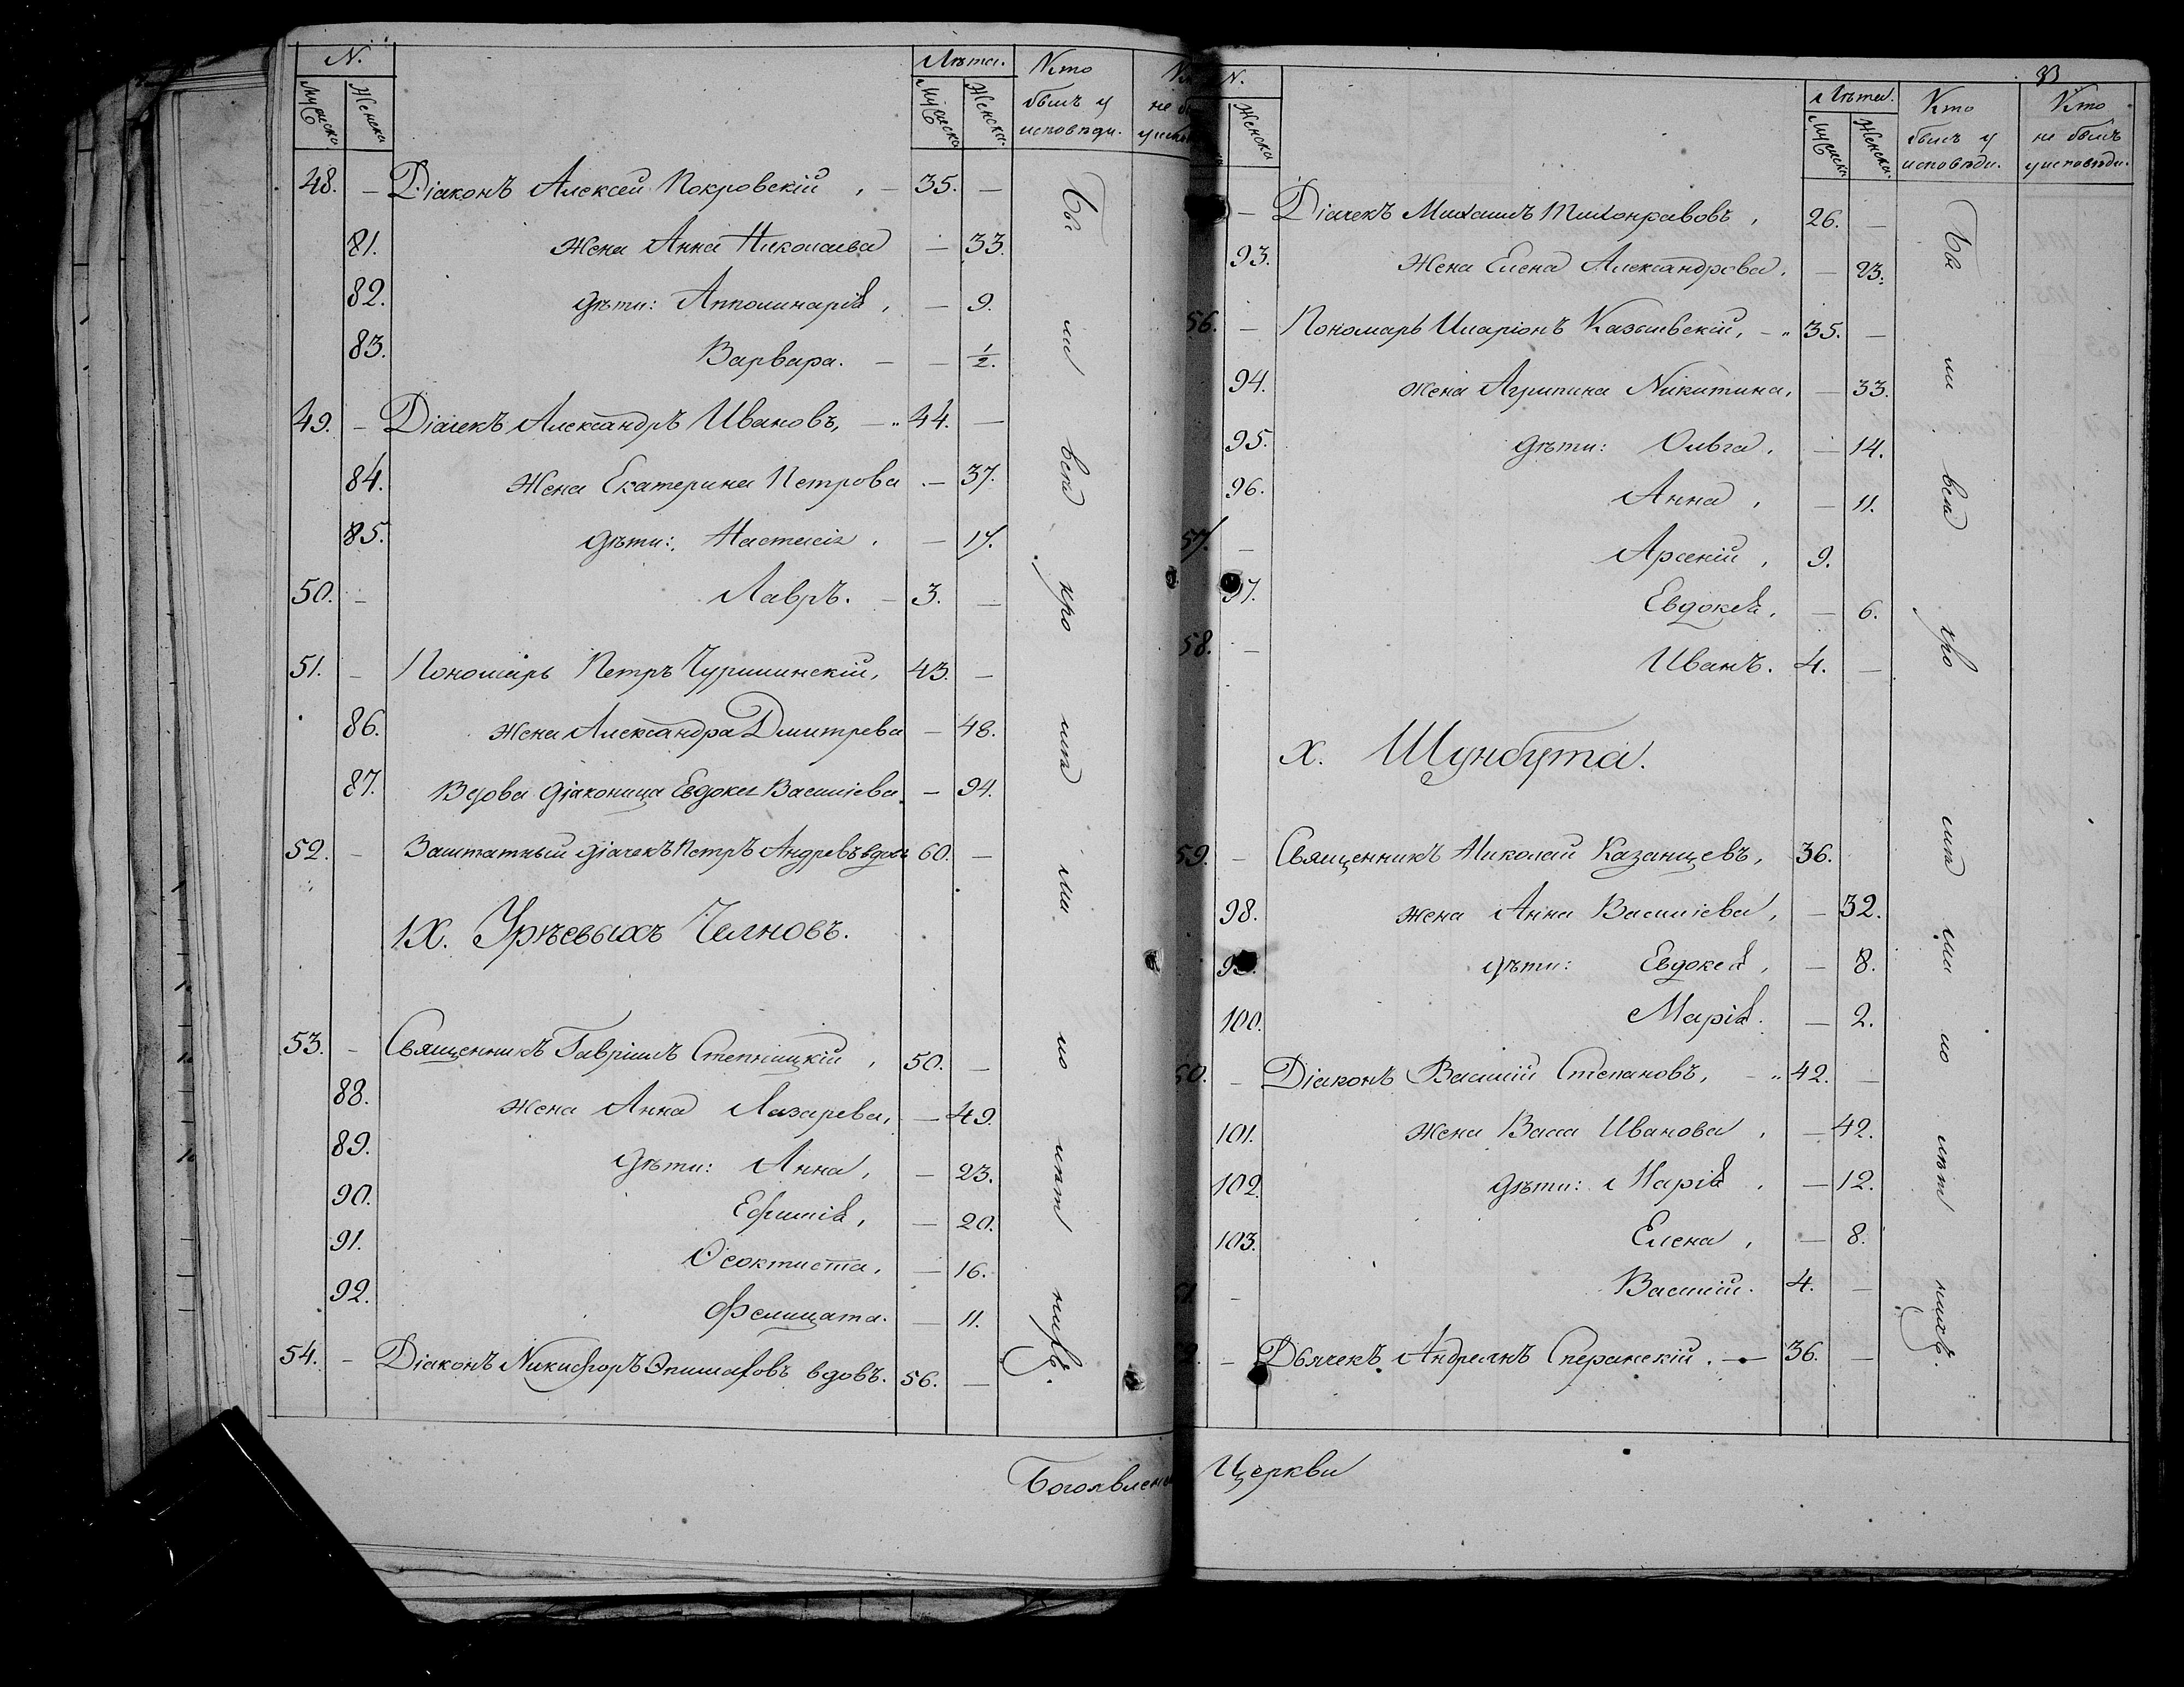 N. Лѣта. Кто былъ у исповѣди. Кто не бы
Мужска Женска Мужска Женска
48. – Діаконъ Алексей Покровскій, – 35. –
81. жена Анна Николаева – 33.
82. дѣти: Апполинарія, – 9.
83. Варвара. – – ½.
49. – Діачекъ Александръ Ивановъ, – 44. –
84. жена Екатерина Петрова – 37.
85. дѣти: Настасія. – 17.
50. – Лавръ. – 3. –
51. – Пономарь Петръ Чуршинскій, 43. –
86. жена Александра Дмитрева – 48.
87. Вдова діаконица Евдокея Василіева. – 94.
52. – Заштатный діачекъ Петръ Андревъ вдовъ 60. –
IX. Урѣевыхъ Челновъ.
53. – Священникъ Гавріилъ Степницкій, 50. –
88. жена Анна Лазарева, – 49.
89. дѣти: Анна, – 23.
90. Ефимія, – 20.
91. Ѳеоктиста, – 16.
92. Фелицата. – 11.
54. – Діаконъ Никифоръ Эпимаховъ вдовъ. 56. –
Богоявленс
33
N. Лѣта. Кто былъ у исповѣди. Кто не былъ у исповѣди.
Женска Мужска Женска
– Діачекъ Михаилъ Тихонравовъ, 26. –
93. жена Елена Александрова. – 23.
56. – Пономарь Иларіонъ Казылевскій, – 35. –
94. жена Агрипина Никитина, – 33.
95. дѣти: Ольга, – 14.
96. Анна, – 11.
57. – Арсеній, 9.
97. Евдокея, – 6.
58. – Иванъ. 4. –
X. Шунбута.
59. – Священникъ Николай Казанцевъ, 36.
98. жена Анна Василіева, – 32.
99. дѣти: Евдокея, – 8.
100. Марія. – 2.
60. – Діаконъ Василій Степановъ, – 42. –
101. жена Васса Иванова, – 42.
102. дѣти: Марія, – 12.
103. Елена, – 8.
– Василій. 4. –
– Дьячекъ Андреянъ Сперанскій. – 36. –
Церкви